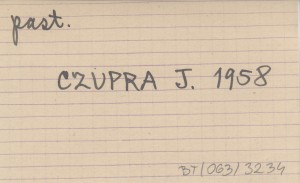 past.
CZUPRA J. 1958
BT/063/3234